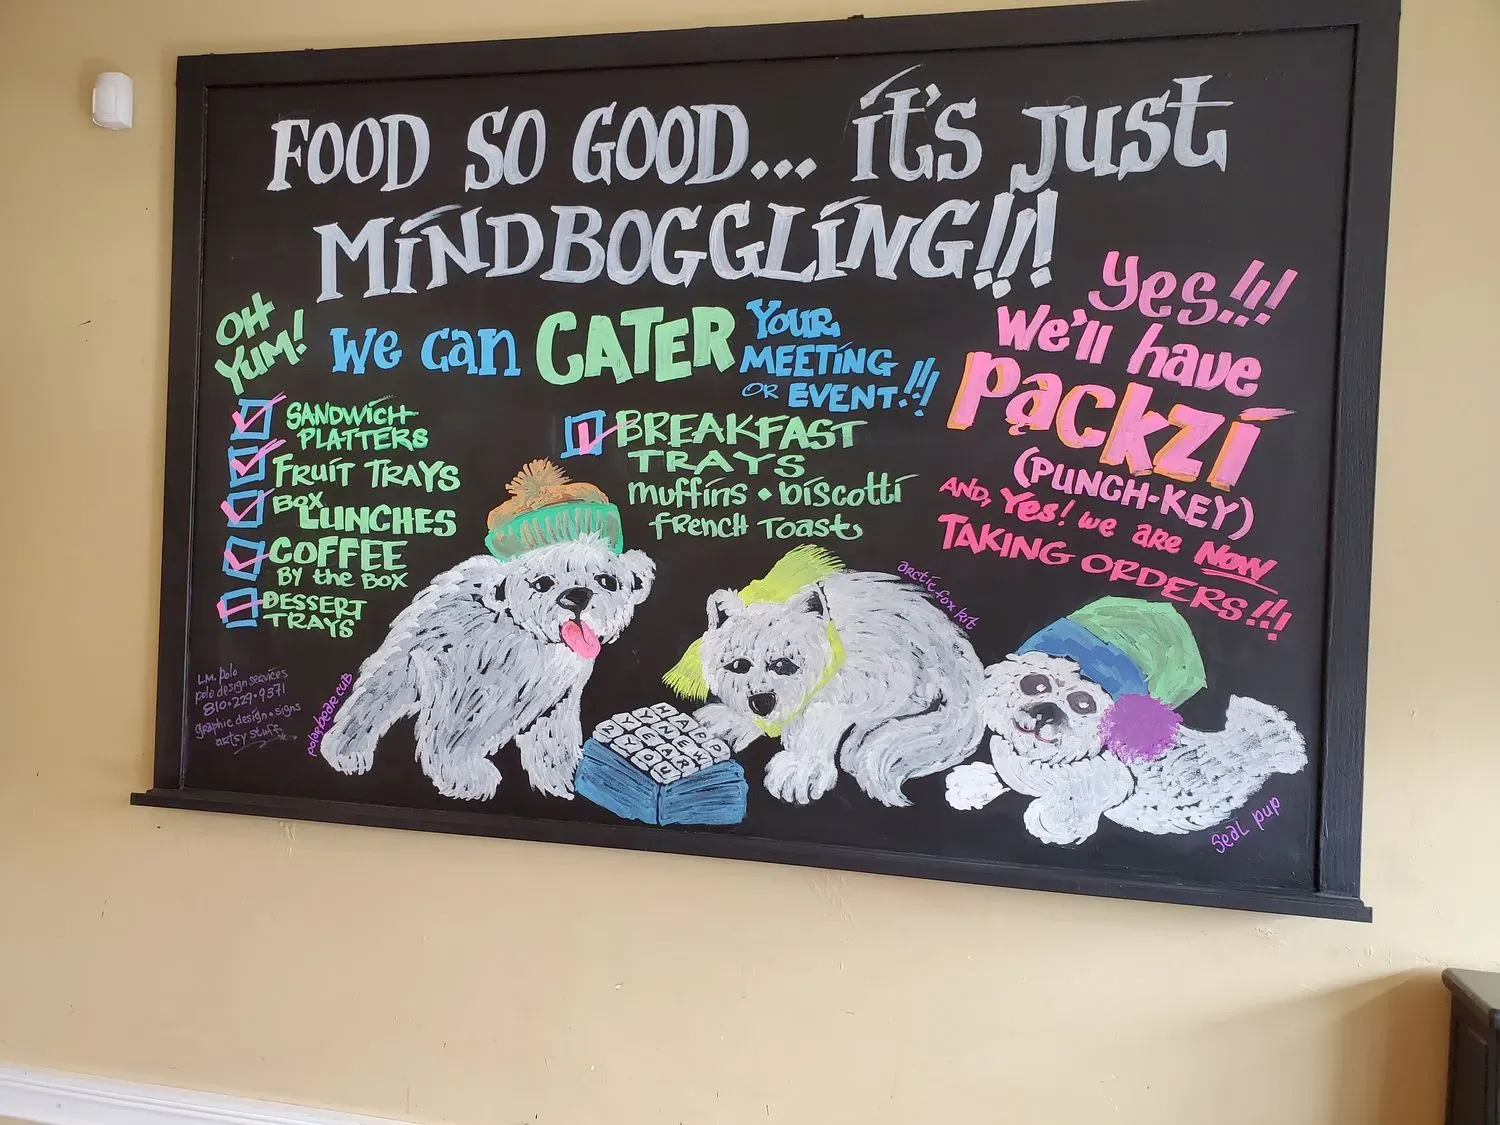 FOOD SO GOOD... it's just
MINDBOGGLING!!!
OH
YUM!
We can CATER
Your
MEETING
OR EVENT!!!
SANDWICH
PLATTERS
FRUIT TRAYS
BOX
LUNCHES
COFFEE
BY the BOX
DESSERT
TRAYS
BREAKFAST
TRAYS
muffins • biscotti
FRENCH Toast
Yes!!!
We'll have
Pączki
(PUNCH-KEY)
AND, Yes! we are NOW
TAKING ORDERS!!!
L.M. Polo
polo design services
810•229•9371
graphic design • signs
artsy stuff
polar bear cub
arctic fox kit
HAPP
YNEW
YEAR
2YOU
seal pup